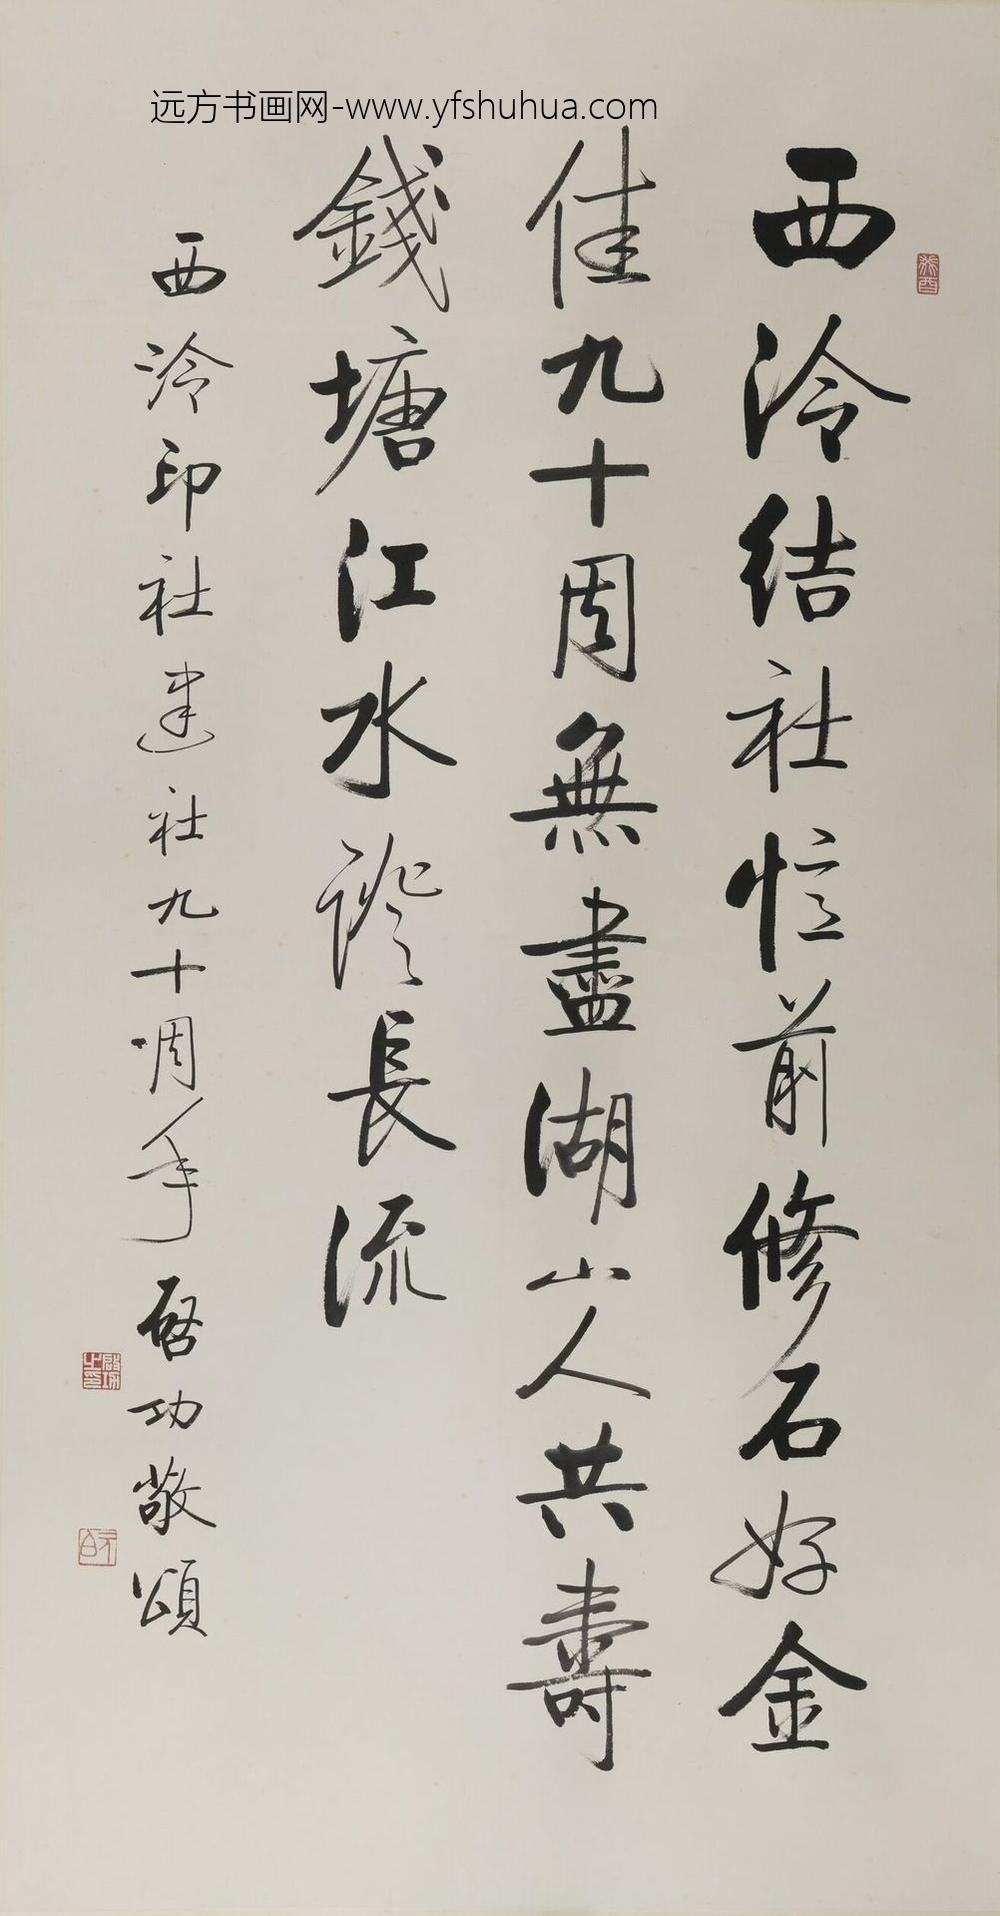 远方书画网-www.yfshuhua.com
西泠结社忆前修石好金
佳九十周無盡湖山人共壽
錢塘江水證長流
西泠印社建社九十周年 啓功敬頌